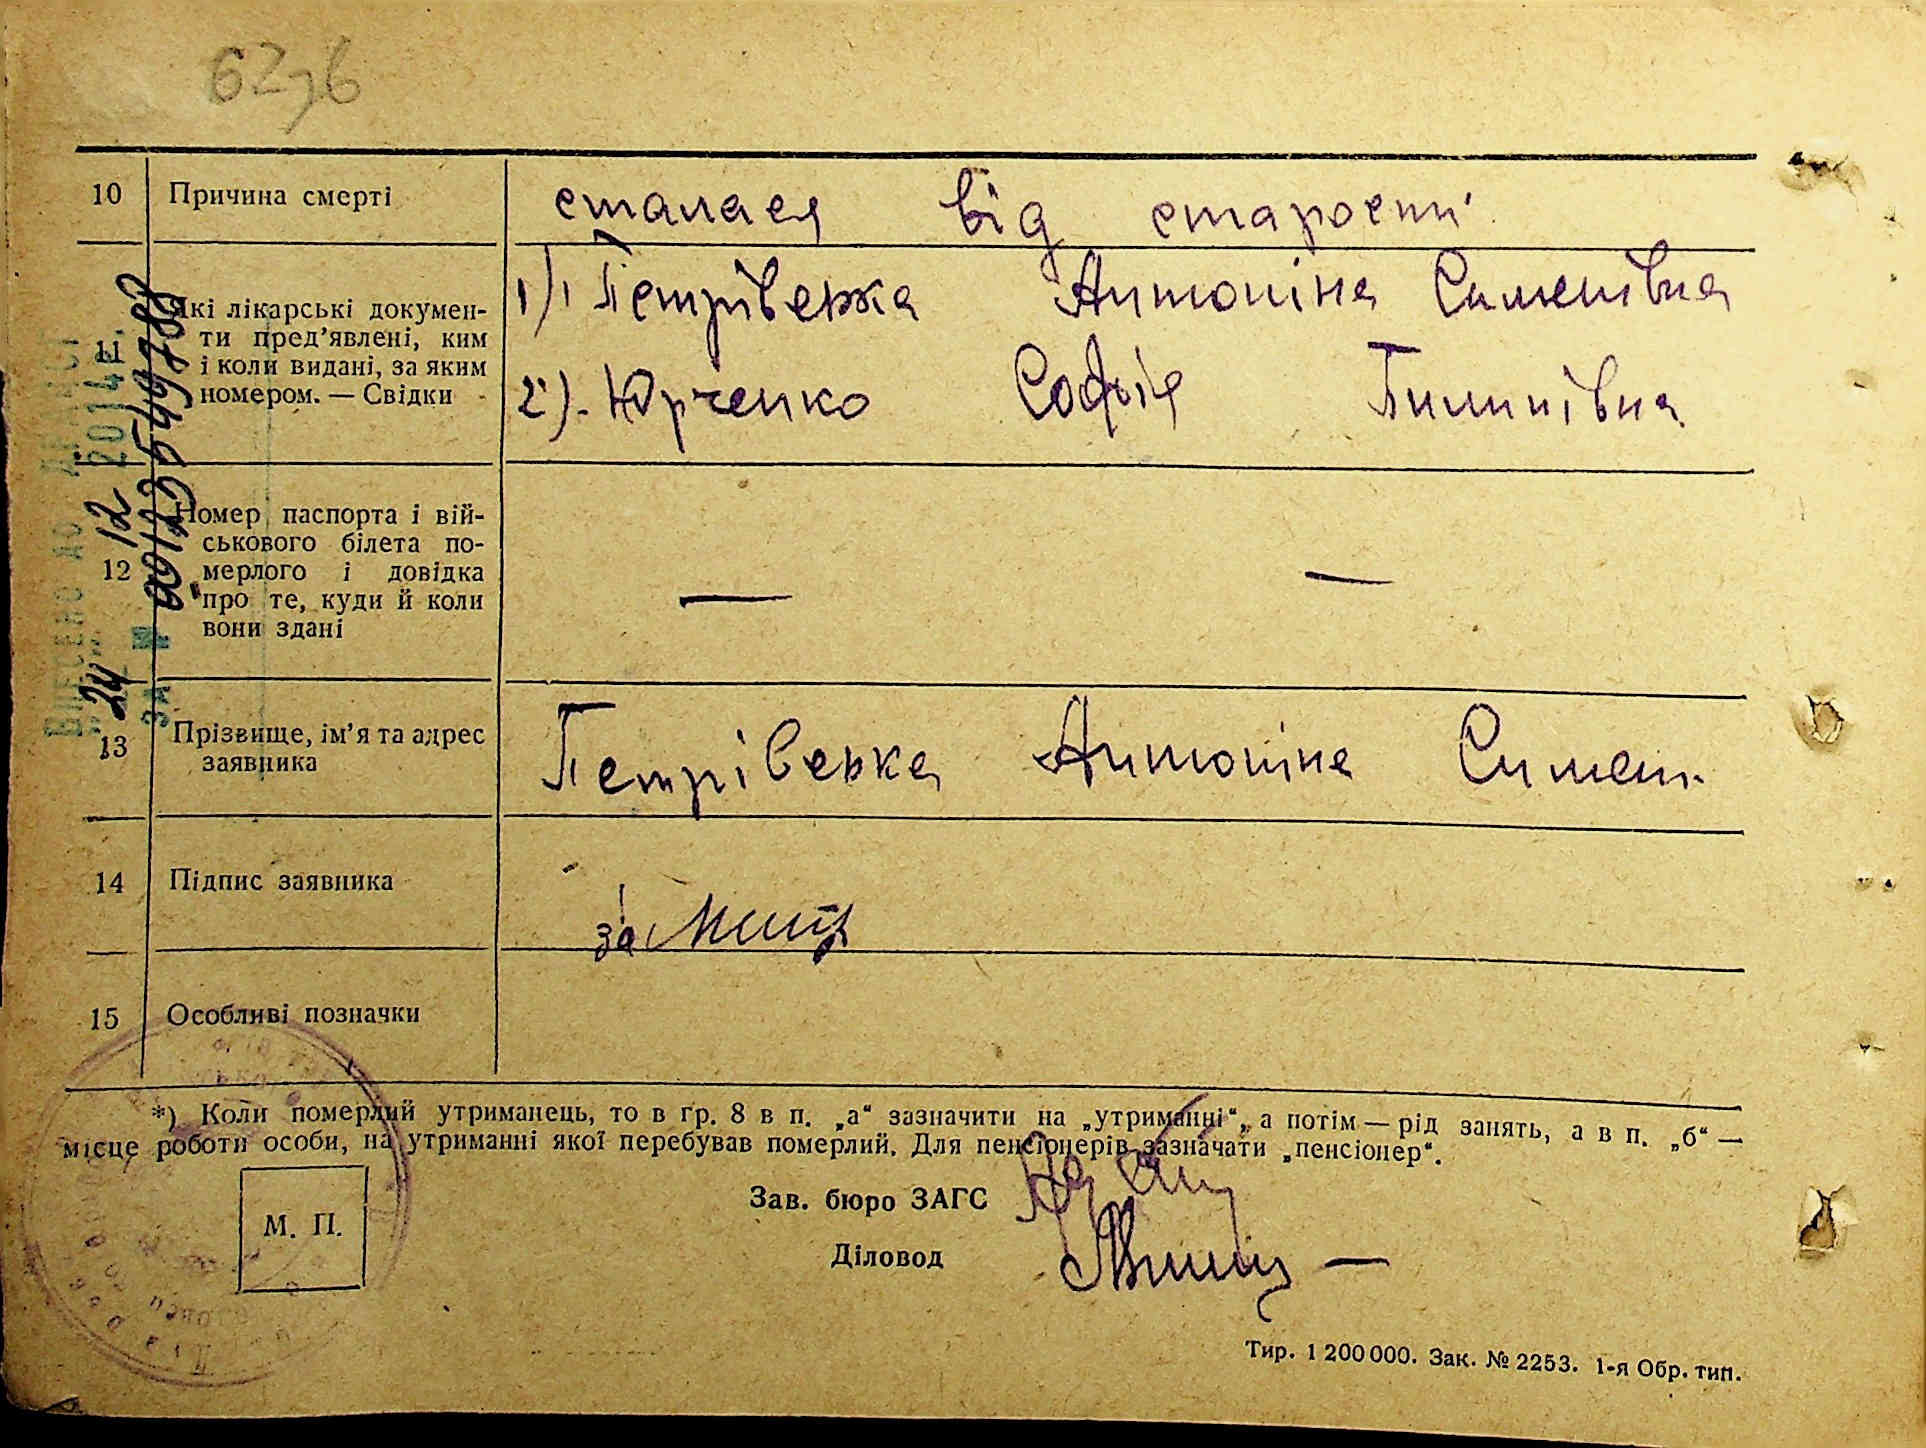 10 Причина смерті сталася від старости
11 Які лікарські докумен-
ти пред’явлені, ким
і коли видані, за яким
номером. — Свідки
1) Петрівська Антоніна Симонівна
2). Юрченко Софія Пилипівна
12 Номер паспорта і вій-
ськового білета по-
мерлого і довідка
про те, куди й коли
вони здані
— —
13 Прізвище, ім’я та адрес
заявника
Петрівська Антоніна Симон.
14 Підпис заявника
за
15 Особливі позначки
*) Коли померлий утриманець, то в гр. 8 в п. „а“ зазначити на „утриманні“, а потім — рід занять, а в п. „б“ —
місце роботи особи, на утриманні якої перебував померлий. Для пенсіонерів зазначати „пенсіонер“.
М. П.
Зав. бюро ЗАГС
Діловод
Тир. 1 200 000. Зак. № 2253. 1-я Обр. тип.
24 12 2014
ЗА № 00123549788